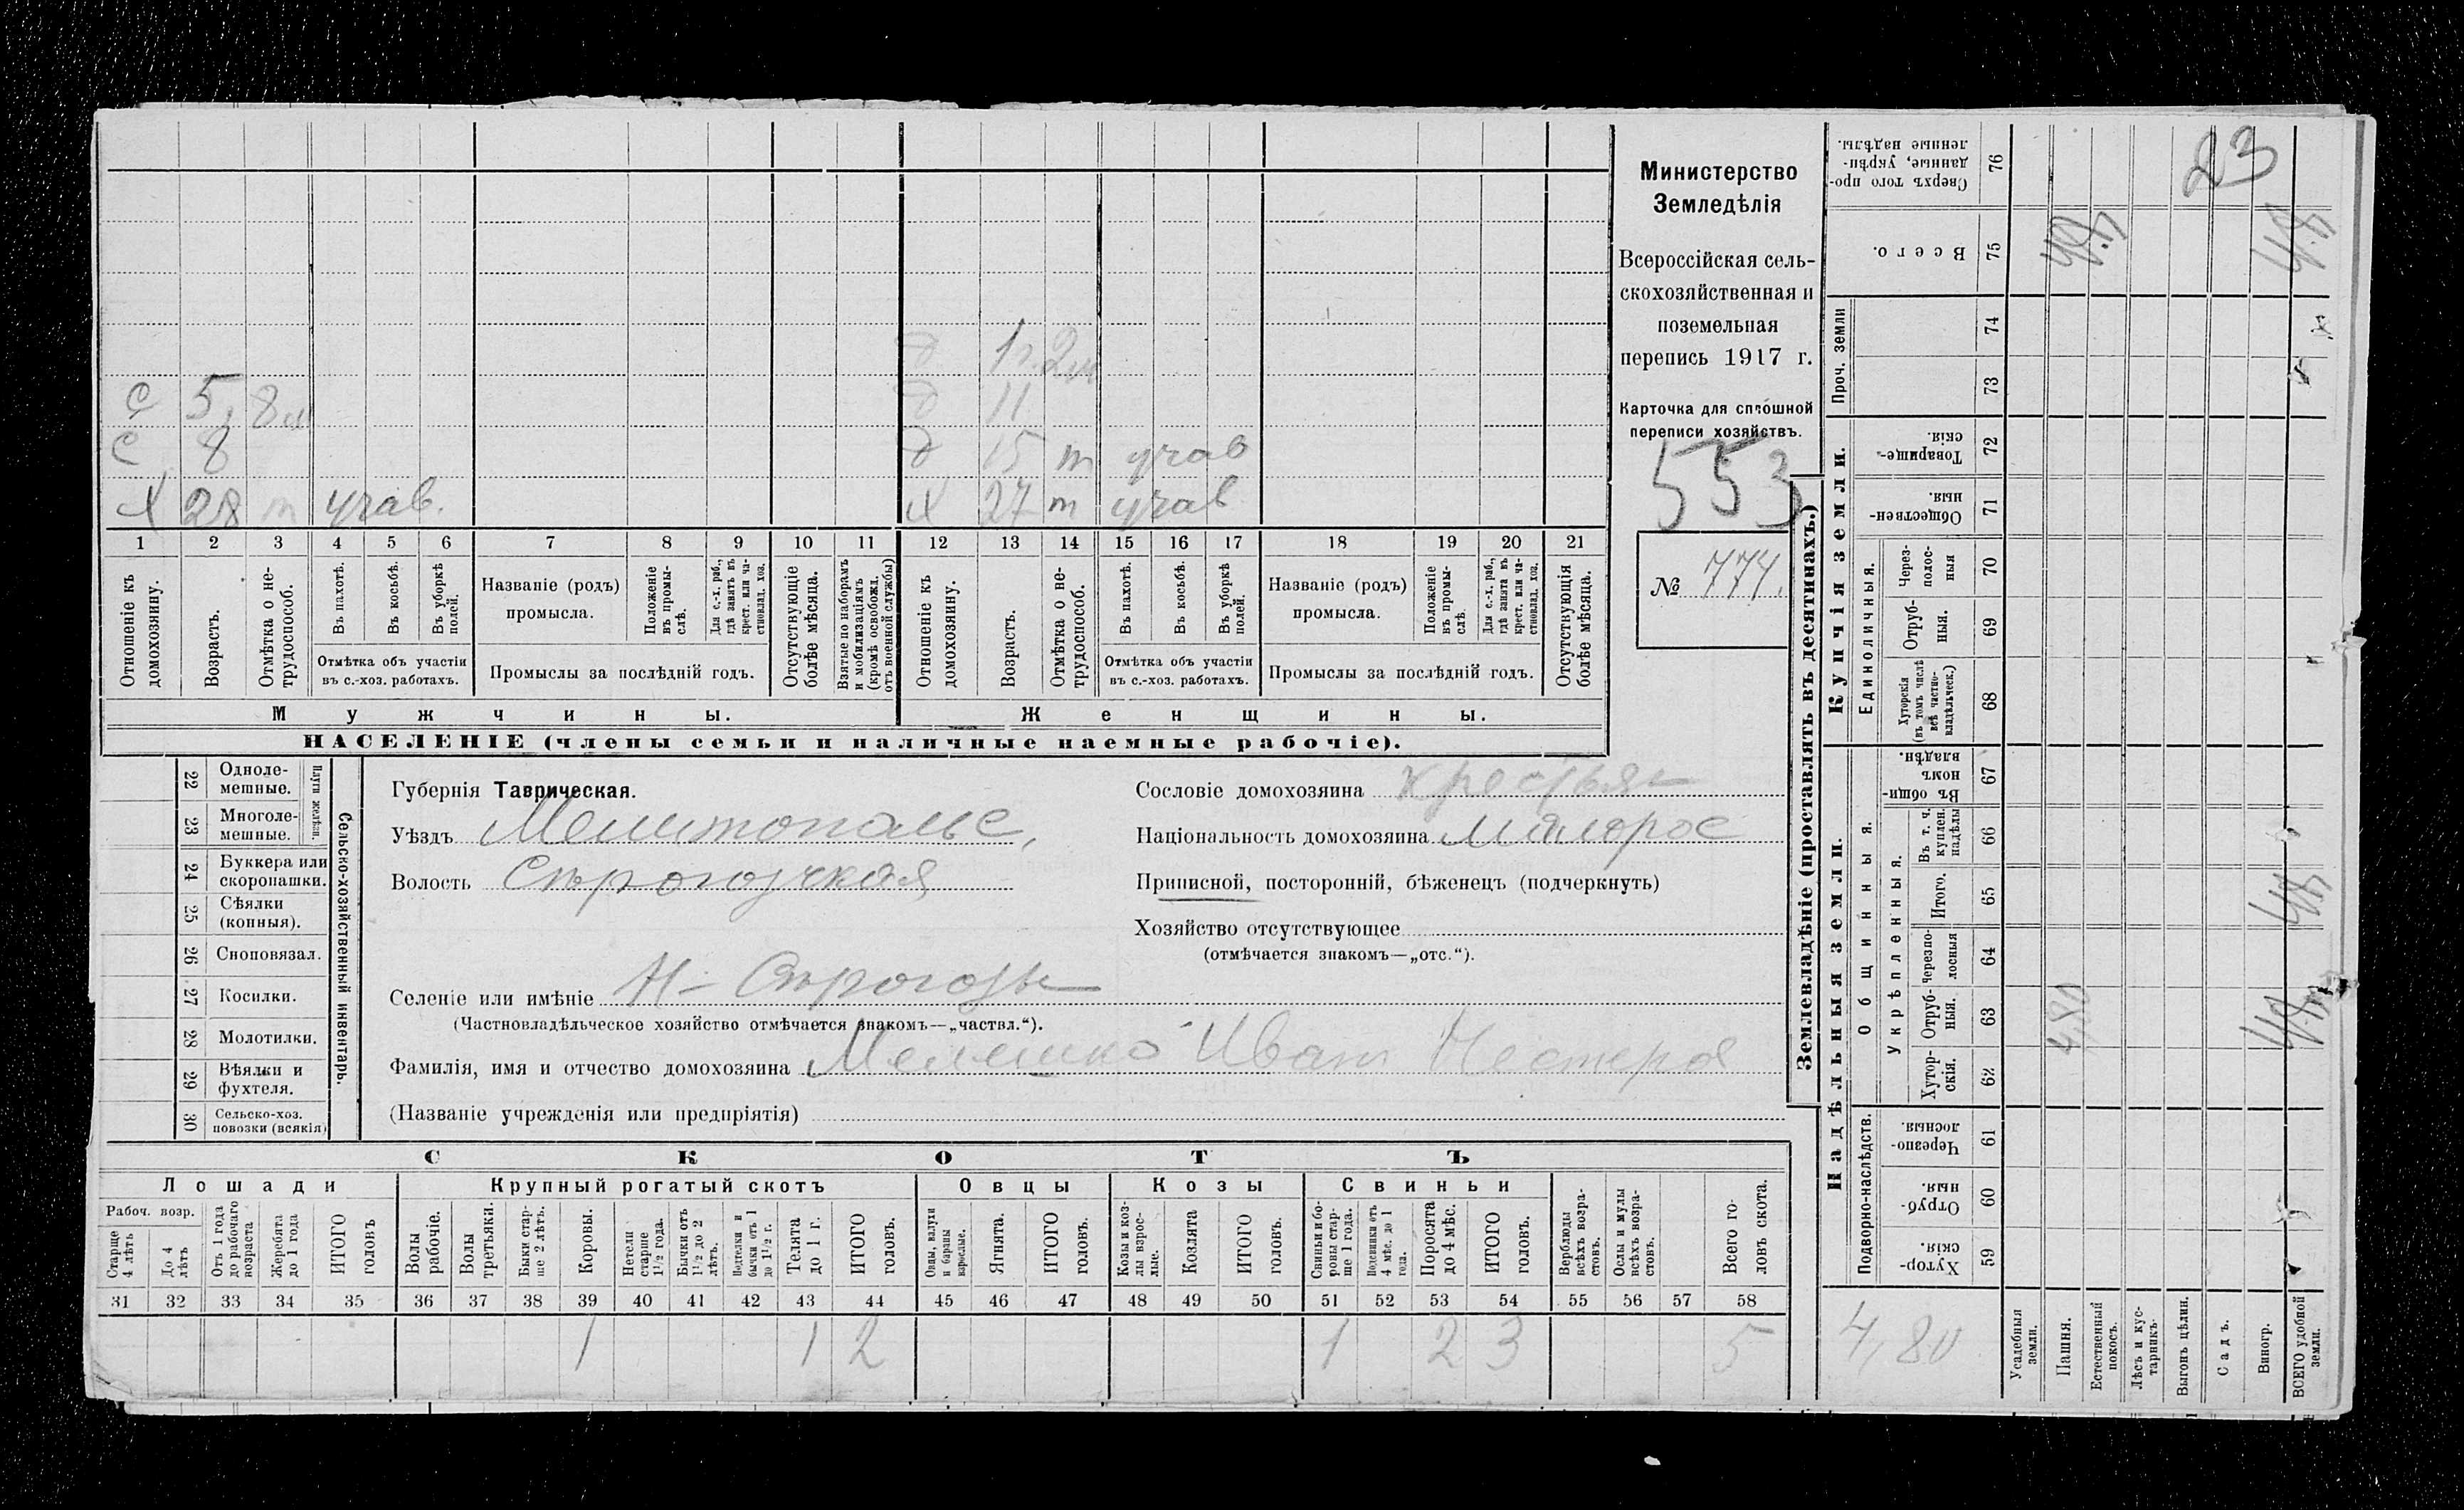 Министерство
Земледѣлія
Всероссійская сель-
скохозяйственная и
поземельная
перепись 1917 г.
Карточка для сплошной
переписи хозяйствъ.
553
№ 774.
1г. 2м
с 5, 8м
11
с 8
15 т учав
х 28 т учав.
х 27 т учав
1 2 3 4 5 6 7 8 9 10 11 12 13 14 15 16 17 18 19 20 21
Отношеніе къ домохозяину.
Возрастъ.
Отмѣтка о не-трудоспособ.
Въ пахотѣ.
Въ косьбѣ.
Въ уборкѣ полей.
Отмѣтка объ участіи
въ с.-хоз. работахъ.
Названіе (родъ)
промысла.
Положеніе въ промы-слѣ.
Для с.-х. раб., гдѣ занятъ въ крест. или ча-стновлад. хоз.
Промыслы за послѣдній годъ.
Отсутствующіе болѣе мѣсяца.
Взятые по наборамъ и мобилизаціямъ (кромѣ освобожд. отъ военной службы)
Отношеніе къ домохозяину.
Возрастъ.
Отмѣтка о не-трудоспособ.
Въ пахотѣ.
Въ косьбѣ.
Въ уборкѣ полей.
Отмѣтка объ участіи
въ с.-хоз. работахъ.
Названіе (родъ)
промысла.
Положеніе въ промы-слѣ.
Для с.-х. раб., гдѣ занята въ крест. или ча-стновлад. хоз.
Промыслы за послѣдній годъ.
Отсутствующія болѣе мѣсяца.
Мужчины.
Женщины.
НАСЕЛЕНІЕ (члены семьи и наличные наемные рабочіе).
22 Одноле-мешные.
23 Многоле-мешные.
Плуги желѣзн.
24 Буккера или скоропашки.
25 Сѣялки (конныя).
26 Сноповязал.
27 Косилки.
28 Молотилки.
29 Вѣялки и фухтеля.
30 Сельско-хоз. повозки (всякія)
Сельско-хозяйственный инвентарь.
Губернія Таврическая.
Уѣздъ Мелитопольс,
Волость Сѣрогозская
Селеніе или имѣніе Н-Сѣрогозы
(Частновладѣльческое хозяйство отмѣчается знакомъ—„частвл.“).
Фамилія, имя и отчество домохозяина Мелешко Иван Нестеров
(Названіе учрежденія или предпріятія)
Сословіе домохозяина крестьян
Національность домохозяина малорос
Приписной, посторонній, бѣженецъ (подчеркнуть)
Хозяйство отсутствующее
(отмѣчается знакомъ—„отс.“).
СКОТЪ
Лошади
Крупный рогатый скотъ
Овцы
Козы
Свиньи
Рабоч. возр.
Старше 4 лѣтъ
До 4 лѣтъ
Отъ 1 года до рабочаго возраста
Жеребята до 1 года
ИТОГО головъ
Волы рабочіе.
Волы третьяки.
Быки стар-ше 2 лѣтъ.
Коровы.
Нетели старше 1½ года.
Бычки отъ 1½ до 2 лѣтъ.
Подтелки и бычки отъ 1 до 1½ г.
Телята до 1 г.
ИТОГО головъ.
Овцы, валухи и бараны взрослые.
Ягнята.
ИТОГО головъ.
Козы и коз-лы взрос-лые.
Козлята
ИТОГО головъ.
Свиньи и бо-ровы стар-ше 1 года.
Подсвинки отъ 4 мѣс. до 1 года.
Поросята до 4 мѣс.
ИТОГО головъ.
Верблюды всѣхъ возра-стовъ.
Ослы и мулы всѣхъ возра-стовъ.
Всего го-ловъ скота.
31 32 33 34 35 36 37 38 39 40 41 42 43 44 45 46 47 48 49 50 51 52 53 54 55 56 57 58
1 1 2 1 2 3 5
Землевладѣніе (проставлять въ десятинахъ.)
Надѣльныя земли.
Купчія земли.
Проч. земли
Подворно-наслѣдств.
Общинныя.
Укрѣпленныя.
Единоличныя.
59 Хутор-скія.
60 Отруб-ныя.
61 Черезпо-лосныя.
62 Хутор-скія.
63 Отруб-ныя.
64 Черезпо-лосныя
65 Итого.
66 Въ т. ч. куплен. надѣлы
67 Въ общи-номъ владѣн.
68 Хуторскія (въ томъ числѣ всѣ частно-владѣльческ.)
69 Отруб-ныя.
70 Через-полос-ныя
71 Обществен-ныя
72 Товарище-скія.
73
74
75 Всего.
76 Сверхъ того про-данные, укрѣп-ленные надѣлы.
Усадебныя земли.
Пашня.
Естественный покосъ.
Лѣсъ и кус-тарникъ.
Выгонъ цѣлин.
Садъ.
Виногр.
ВСЕГО удобной земли.
4,80
4,80
23